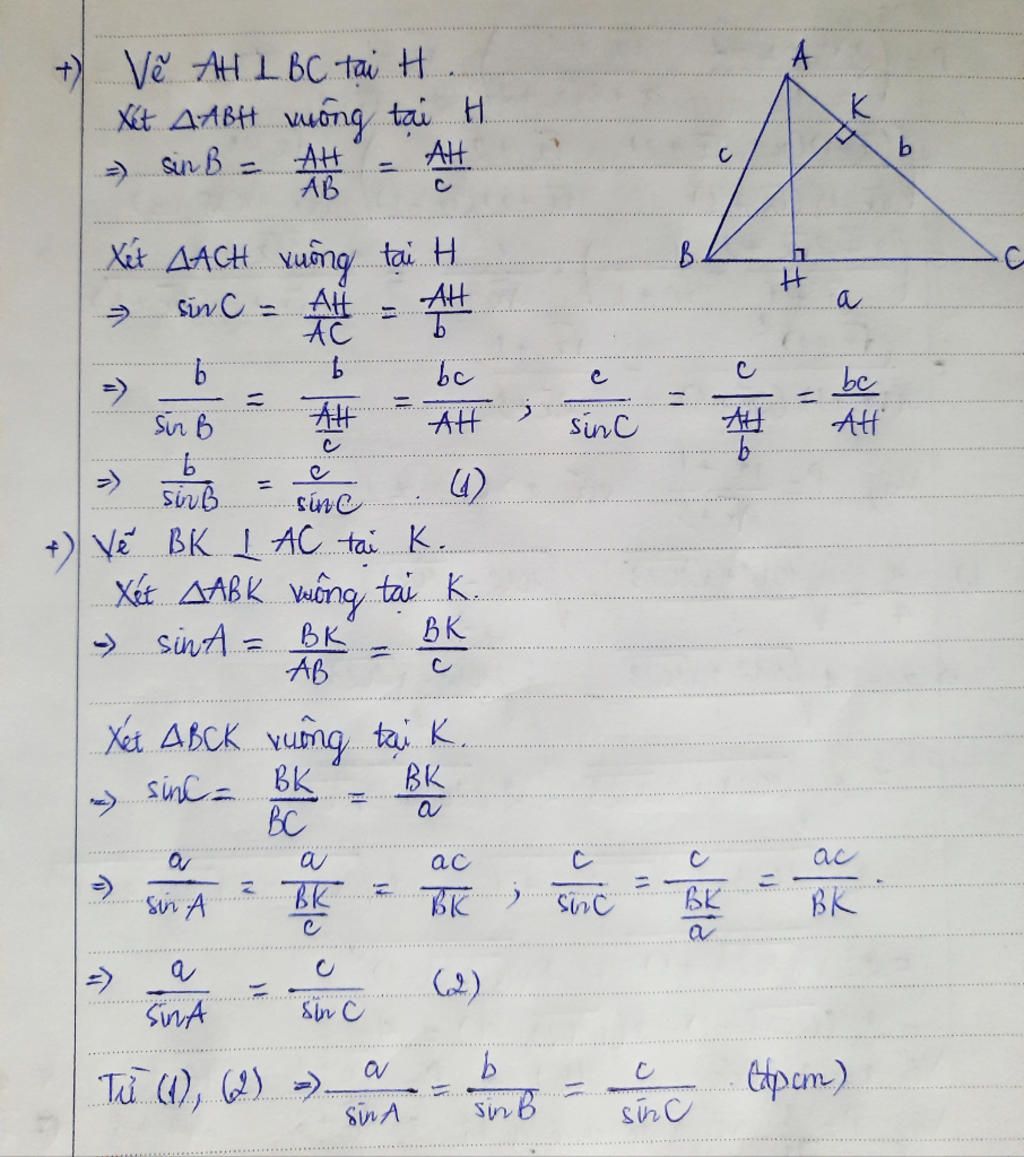 +) Vẽ AH ⊥ BC tại H.
Xét ΔABH vuông tại H
=> sinB = AH/AB = AH/c
Xét ΔACH vuông tại H
=> sinC = AH/AC = AH/b
=> b/sinB = b/(AH/c) = bc/AH ; c/sinC = c/(AH/b) = bc/AH
=> b/sinB = c/sinC . (1)
+) Vẽ BK ⊥ AC tại K.
Xét ΔABK vuông tại K.
=> sinA = BK/AB = BK/c
Xét ΔBCK vuông tại K.
=> sinC = BK/BC = BK/a
=> a/sinA = a/(BK/c) = ac/BK ; c/sinC = c/(BK/a) = ac/BK .
=> a/sinA = c/sinC (2)
Từ (1), (2) => a/sinA = b/sinB = c/sinC (đpcm)
A
K
c
b
B
H
C
a